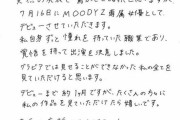 ７月１６日にMOODYZ専属女優として
デビューさせていただきます。
私自身ずっと憧れを持っていた職業であり、
覚悟を持って出演を決意しました。
グラビアでは見せることができなかった私の全てを
見ていただけると思います。
デビューまで約１ヶ月ですが、たくさんの方に
私の作品を見ていただけたら嬉しいです。